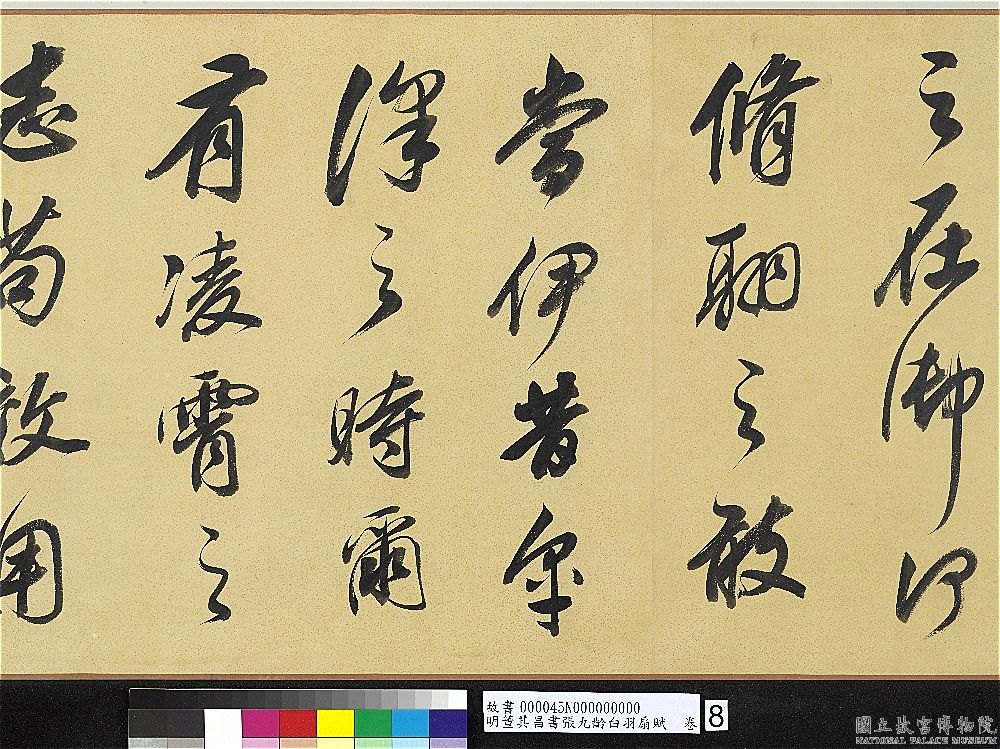 之在御何
脩翮之敢
當伊昔皋
澤之時爾
有凌霄之
志苟效用
故書 000045N000000000
明董其昌書張九齡白羽扇賦 卷
8
國立故宮博物院
NATIONAL PALACE MUSEUM